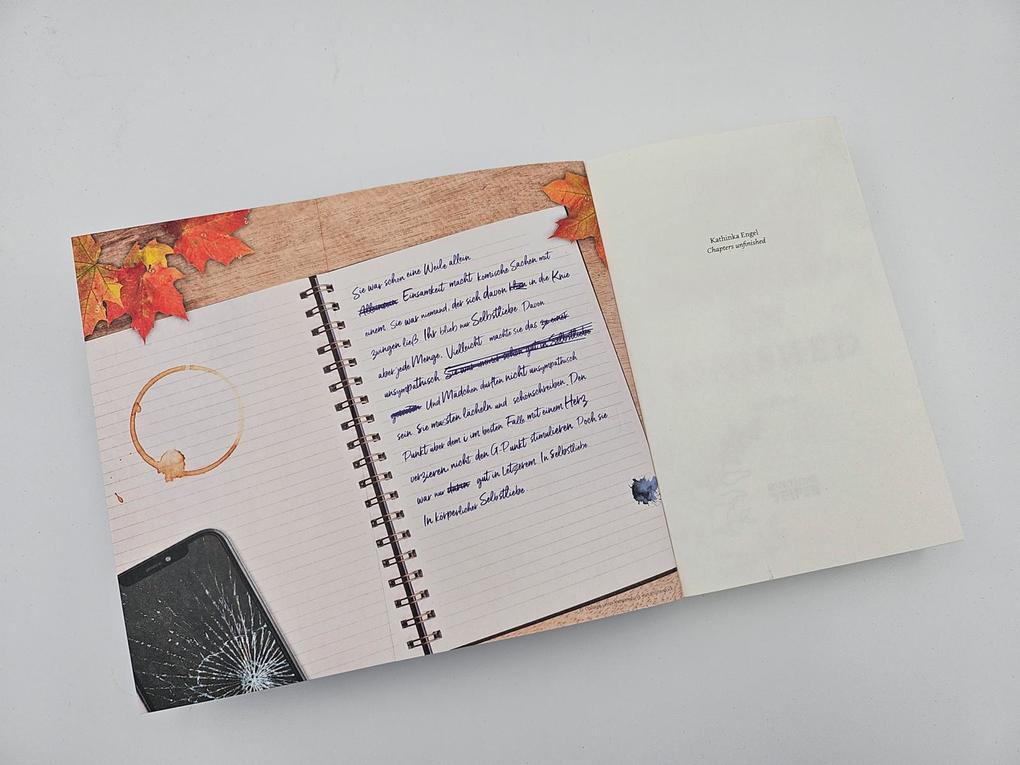 Sie war schon eine Weile allein.
Einsamkeit macht komische Sachen mit
einem. Sie war niemand, der sich davon in die Knie
zwingen ließ. Ihr blieb nur Selbstliebe. Davon
aber jede Menge. Vielleicht machte sie das
unsympathisch.
Und Mädchen durften nicht unsympathisch
sein. Sie mussten lächeln und schönschreiben. Den
Punkt über dem i im besten Falle mit einem Herz
verzieren nicht den G-Punkt stimulieren. Doch sie
war nur gut in Letzerem. In Selbstliebe.
In körperlicher Selbstliebe.
Kathinka Engel
Chapters unfinished